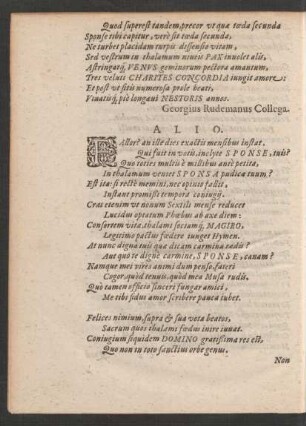 Quod superest tandem, precor ut quæ tæda secunda
Sponse tibi capitur, verè sit tæda secunda.
Ne turbet placidam turpis dissensio vitam,
Sed vestrum in thalamum niveis PAX involet alis,
Astringatq́; VENUS geminorum pectora amantum,
Tres veluti CHARITES CONCORDIA iungit amore:
Et post ut sitis numerosa prole beati,
Vivatisq́; piè longævi NESTORIS annos.
Georgius Rudemanus Collega.
ALIO.
an iste dies exactis mensibus instat,
Qui fuit in votis, inclyte SPONSE, tuis?
Quo toties multis è millibus antè petita,
In thalamum veniet SPONSA pudica tuum?
Est ita: si rectè memini, nec opinio fallit,
Instant promissi tempora coniugij.
Cras etenim ut nonum Sextili mense reducet
Lucidus optatum Phœbus ab axe diem:
Consertem vitæ, thalami sociamq́, MAGIRO,
Legitimo pactus fœdere iunget Hymen.
At nunc digna tuis quæ dicam carmina tædis?
Aut quo te digne carmine, SPONSE, canam?
Namque meis vires animi dum pensо, fateri
Cogor, quòd tenuis, quòd mea Musa rudis.
Quò tamen officio sinceri fungar amici,
Me tibi fidus amor scribere pauca iubet.
Felices nimium, supra & sua vota beatos,
Sacrum quos thalami fœdus inire iuvat.
Coniugium siquidem DOMINO gratissima res est,
Quo non in toto sanctius orbe genus.
Non